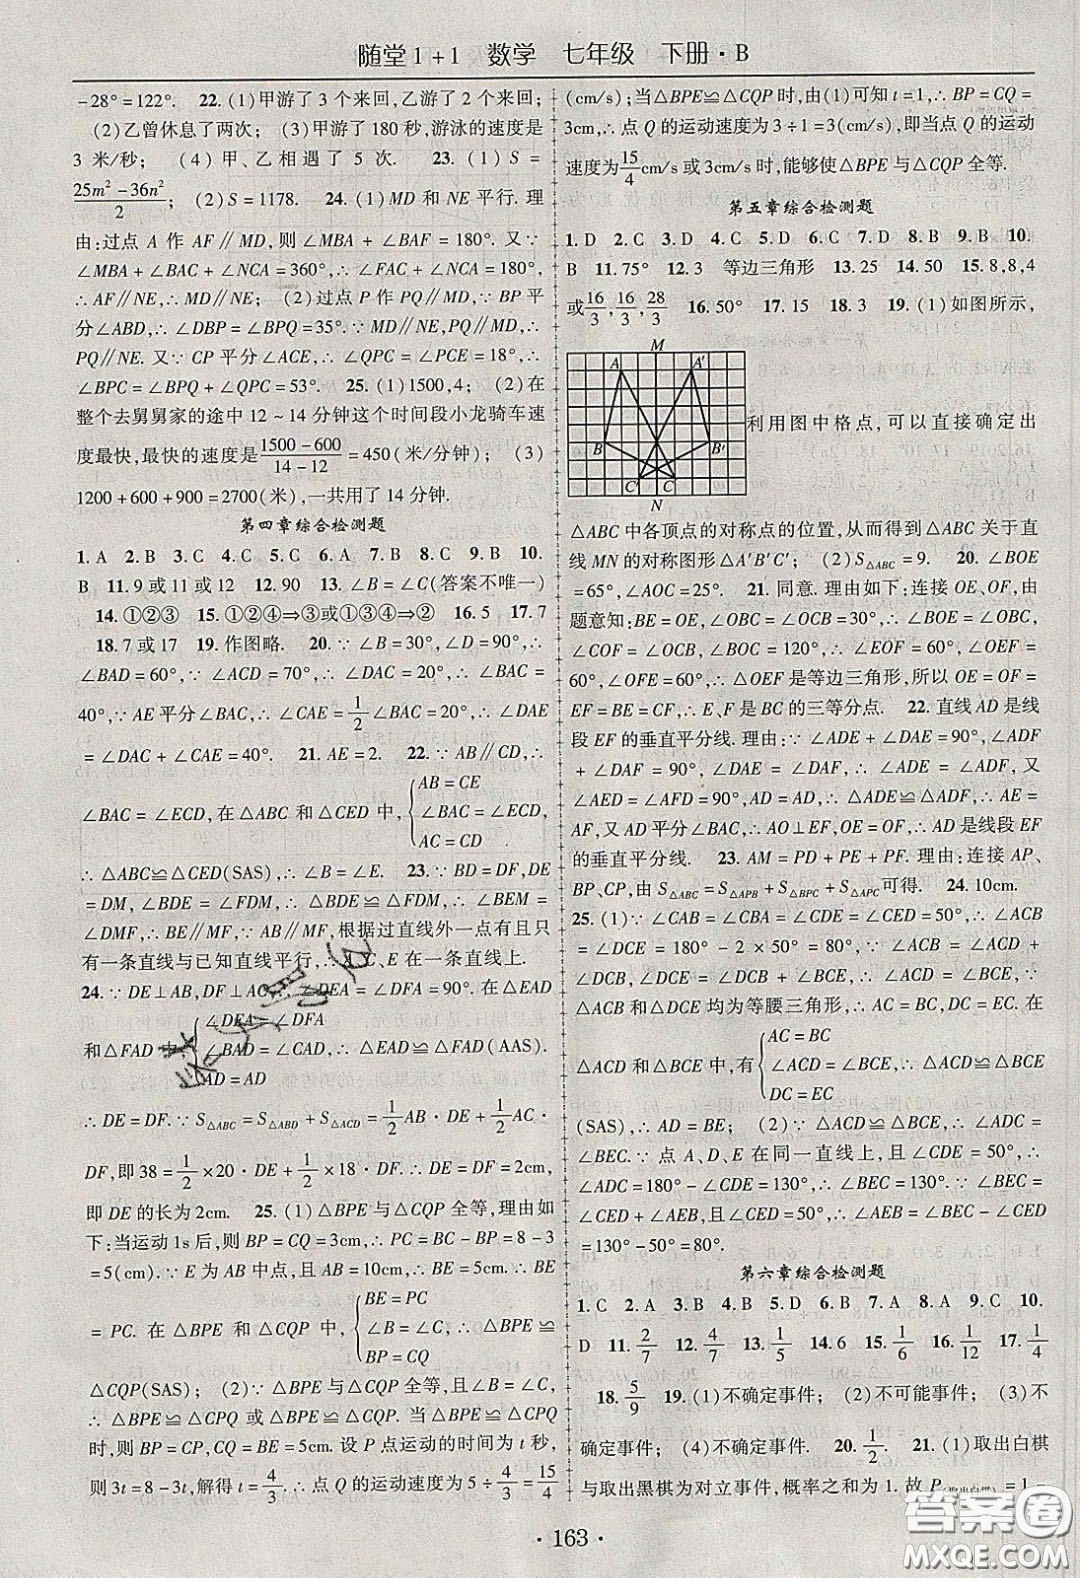 随堂1+1 数学 七年级 下册·B
-28°=122°. 22.(1)甲游了3个来回,乙游了2个来回;
(2)乙曾休息了两次;(3)甲游了180秒,游泳的速度是
3米/秒;(4)甲、乙相遇了5次. 23.(1)S=
(25m²-36n²)/2;(2)S=1178. 24.(1)MD和NE平行.理
由:过点A作AF∥MD,则∠MBA+∠BAF=180°.又∵
∠MBA+∠BAC+∠NCA=360°,∴∠FAC+∠NCA=180°,
∴AF∥NE,∴MD∥NE;(2)过点P作PQ∥MD,∵BP平
分∠ABD,∴∠DBP=∠BPQ=35°.∵MD∥NE,PQ∥MD,∴
PQ∥NE.又∵CP平分∠ACE,∴∠QPC=∠PCE=18°,∴
∠BPC=∠BPQ+∠QPC=53°. 25.(1)1500,4;(2)在
整个去舅舅家的途中12~14分钟这个时间段小龙骑车速
度最快,最快的速度是(1500-600)/(14-12)=450(米/分钟);(3)
1200+600+900=2700(米),一共用了14分钟.
第四章综合检测题
1. A 2. B 3. C 4. C 5. C 6. A 7. B 8. C 9. B 10.
B 11. 9或11或12 12. 90 13. ∠B=∠C(答案不唯一)
14. ①②③ 15. ①②④⇒③或①③④⇒② 16. 5 17. 7
18. 7或17 19. 作图略. 20. ∵∠B=30°,∠D=90°,∴
∠BAD=60°,∵∠ACD=70°,∴∠DAC=20°,∴∠BAC=
40°,∵AE平分∠BAC,∴∠CAE=1/2∠BAC=20°,∴∠DAE
=∠DAC+∠CAE=40°. 21. AE=2. 22. ∵AB∥CD,∴
∠BAC=∠ECD,在△ABC和△CED中,{AB=CE
∠BAC=∠ECD,
AC=CD
∴△ABC≌△CED(SAS),∴∠B=∠E. 23. ∵BD=DF,DE
=DM,∠BDE=∠FDM,∴△BDE≌△FDM,∴∠BEM=
∠DMF,∴BE∥MF,∵AB∥MF,根据过直线外一点有且只
有一条直线与已知直线平行,∴A、C、E在一条直线上.
24. ∵DE⊥AB,DF⊥AC,∴∠DEA=∠DFA=90°.在△EAD
和△FAD中,{∠DEA=∠DFA
∠BAD=∠CAD,∴△EAD≌△FAD(AAS).
AD=AD
∴DE=DF.∵S△ABC=S△ABD+S△ACD=1/2AB·DE+1/2AC·
DF,即38=1/2×20·DE+1/2×18·DF.∴DE=DF=2cm,
即DE的长为2cm. 25.(1)△BPE与△CQP全等,理由如
下:当运动1s后,则BP=CQ=3cm,∴PC=BC-BP=8-3
=5(cm),∵E为AB中点,且AB=10cm,∴BE=5cm.∴BE
=PC.在△BPE和△CQP中,{BE=PC
∠B=∠C,∴△BPE≌
BP=CQ
△CQP(SAS);(2)∵△BPE与△CQP全等,且∠B=∠C,
∴△BPE≌△CPQ或△BPE≌△CQP.当△BPE≌△CPQ
时,则BP=CP,CQ=BE=5cm.设P点运动的时间为t秒,
则3t=8-3t,解得t=4/3.∴点Q的运动速度为5÷4/3=15/4
(cm/s);当△BPE≌△CQP时,由(1)可知t=1,∴BP=CQ=
3cm,∴点Q的运动速度为3÷1=3(cm/s),即当点Q的运动
速度为15/4cm/s或3cm/s时,能够使△BPE与△CQP全等.
第五章综合检测题
1. D 2. C 3. C 4. D 5. C 6. D 7. D 8. B 9. B 10.
B 11. 75° 12. 3 等边三角形 13. 25 14. 50 15. 8,8,4
或16/3,16/3,28/3 16. 50° 17. 15 18. 3 19.(1)如图所示,
M
A A′
B B′
C′ C
N
利用图中格点,可以直接确定出
△ABC中各顶点的对称点的位置,从而得到△ABC关于直
线MN的对称图形△A′B′C′;(2)S△ABC=9. 20. ∠BOE
=65°,∠AOC=25°. 21. 同意.理由如下:连接OE,OF,由
题意知:BE=OE,∠OBC=∠OCB=30°,∴∠BOE=∠OBC,
∠COF=∠OCB,∠BOC=120°,∴∠EOF=60°,∠OEF=
60°,∠OFE=60°,∴△OEF是等边三角形,所以OE=OF=
EF=BE=CF,∴E、F是BC的三等分点. 22. 直线AD是线
段EF的垂直平分线.理由:∵∠ADE+∠DAE=90°,∠ADF
+∠DAF=90°,∠DAE=∠DAF,∴∠ADE=∠ADF,又
∠AED=∠AFD=90°,AD=AD,∴△ADE≌△ADF,∴AE=
AF,又AD平分∠BAC,∴AO⊥EF,OE=OF,∴AD是线段EF
的垂直平分线. 23. AM=PD+PE+PF.理由:连接AP、
BP、CP,由S△ABC=S△APB+S△BPC+S△APC可得. 24. 10cm.
25.(1)∵∠CAB=∠CBA=∠CDE=∠CED=50°,∴∠ACB
=∠DCE=180°-2×50°=80°,∵∠ACB=∠ACD+
∠DCB,∠DCE=∠DCB+∠BCE,∴∠ACD=∠BCE,
∵△ACB和△DCE均为等腰三角形,∴AC=BC,DC=EC.在
△ACD和△BCE中,有{AC=BC
∠ACD=∠BCE,∴△ACD≌△BCE
DC=EC
(SAS),∴AD=BE;(2)∵△ACD≌△BCE,∴∠ADC=
∠BEC.∵点A、D、E在同一直线上,且∠CDE=50°,∴
∠ADC=180°-∠CDE=130°,∴∠BEC=130°,∵∠BEC=
∠CED+∠AEB,且∠CED=50°,∴∠AEB=∠BEC-∠CED
=130°-50°=80°.
第六章综合检测题
1. C 2. A 3. B 4. B 5. D 6. B 7. A 8. A 9. C 10.
D 11. 2/7 12. 4/7 13. 1/5 14. 6 15. 1/6 16. 1/12 17. 1/4
18. 5/9 19.(1)不确定事件;(2)不可能事件;(3)不
确定事件;(4)不确定事件. 20. 1/2. 21.(1)取出白棋
与取出黑棋为对立事件,概率之和为1.故P(取出白棋)=1-
·163·
答案圈
MXQE.COM